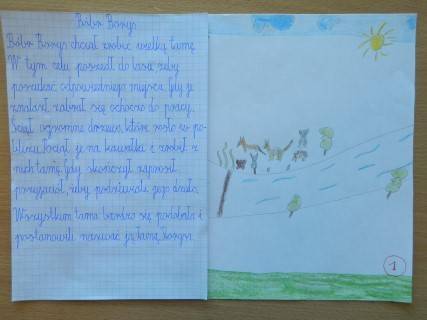 Bóbr Borys
Bóbr Borys chciał zrobić wielką tamę.
W tym celu poszedł do lasu żeby
poszukać odpowiedniego miejsca. Gdy je
znalazł zabrał się ochoczo do pracy.
Ściął ogromne drzewo, które rosło w po-
bliżu. Pociął je na kawałki i zrobił z
nich tamę. Gdy skończył zaprosił
przyjaciół, żeby podziwiali jego dzieło.
Wszystkim tama bardzo się podobała i
postanowili nazwać ją tamą Borysa.
1